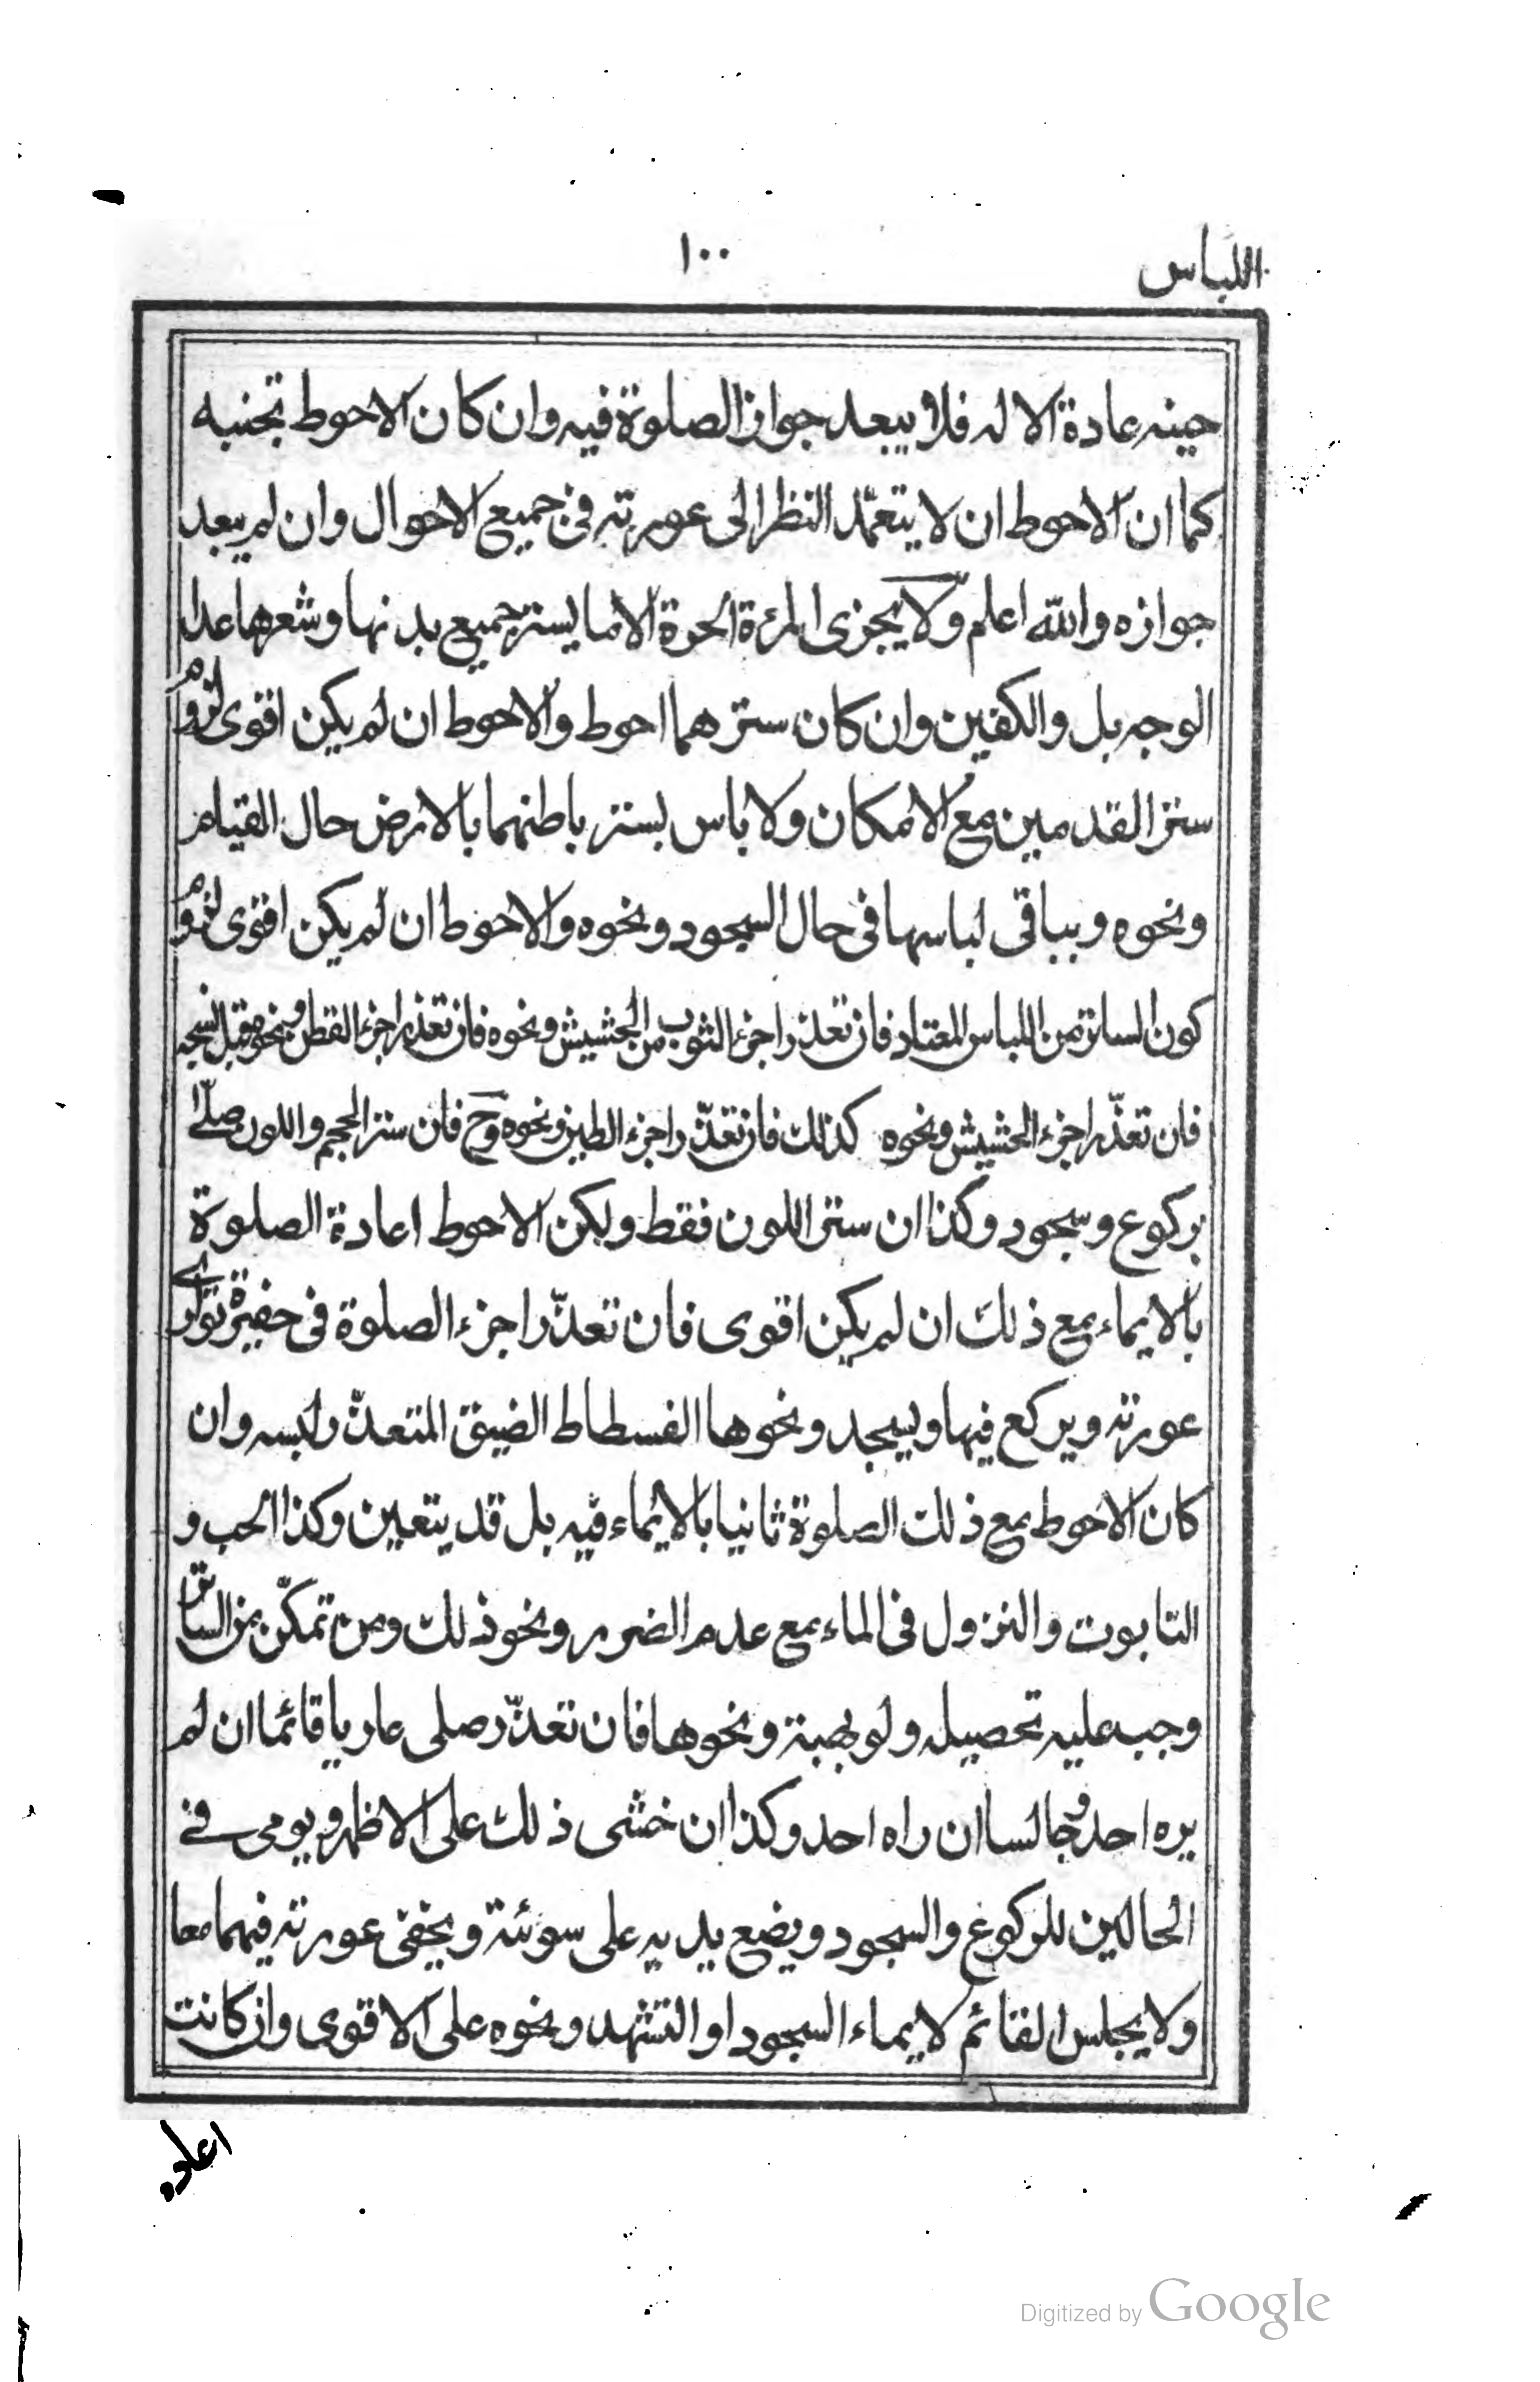 اللباس
١٠٠
حينه عادة الا له فلا يبعد جواز الصلوة فيه وان كان الاحوط تجنبه
كما ان الاحوط ان لا يتعمّد النظر الى عورته فى جميع الاحوال وان لم يبعد
جوازه والله اعلم ولا يجزى المرئة الحرة الا ما يستر جميع بدنها وشعرها عدا
الوجه بل والكفين وان كان سترهما احوط والاحوط ان لم يكن اقوى لزوم
ستر القدمين مع الامكان ولا باس بستر باطنهما بالارض حال القيام
ونحوه وبباقى لباسها فى حال السجود ونحوه والاحوط ان لم يكن اقوى لزوم
كون الساتر من اللباس المعتاد فان تعذر اجزء الثوب من الحشيش ونحوه فان تعذر اجزء القطن ونحوه قبل النسج
فان تعذّر اجزء الحشيش ونحوه كذلك فان تعذّر اجزء الطين ونحوه وح فان ستر الحجم واللون صلّى
بركوع وسجود وكذا ان ستر اللون فقط ولكن الاحوط اعادة الصلوة
بالايماء مع ذلك ان لم يكن اقوى فان تعذّر اجزء الصلوة فى حفيرة توارى
عورته ويركع فيها ويسجد ونحوها الفسطاط الضيق المتعذّر لبسه وان
كان الاحوط مع ذلك الصلوة ثانيا بالايماء فيه بل قد يتعين وكذا الحب و
التابوت والنزول فى الماء مع عدم الضرر ونحو ذلك ومن تمكّن من الساتر
وجب عليه تحصيله ولو بهبة ونحوها فان تعذّر صلى عاريا قائما ان لم
يره احد وجالسا ان راه احد وكذا ان خشى ذلك على الاظهر ويومى فى
الحالين للركوع والسجود ويضع يديه على سوئته ويخفى عورته فيهما معا
ولا يجلس القائم لايماء السجود او التشهد ونحوه على الاقوى وان كانت
اعاده
Digitized by Google